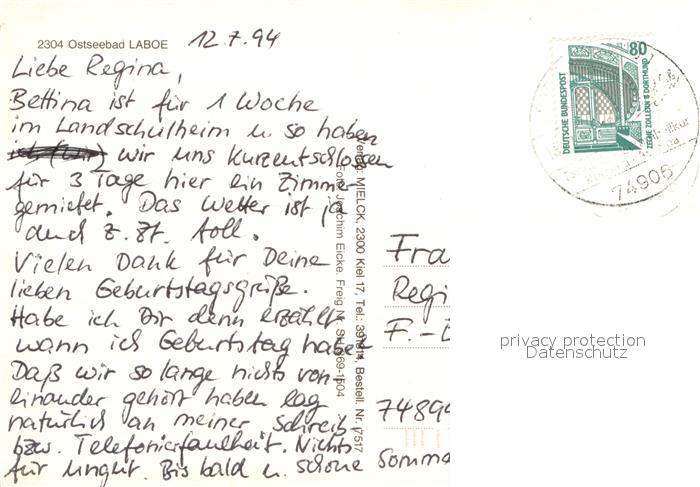 2304 Ostseebad LABOE
12.7.94
Liebe Regina,
Bettina ist für 1 Woche
im Landschulheim u. so haben
wir uns kurzentschlossen
für 3 Tage hier ein Zimmer
gemietet. Das Wetter ist ja
auch z. Zt. toll.
Vielen Dank für Deine
lieben Geburtstagsgrüße.
Habe ich Dir denn erzählt
wann ich Geburtstag habe?
Daß wir so lange nichts von-
einander gehört haben lag
natürlich an meiner Schreib-
bzw. Telefonierfaulheit. Nichts
für ungut. Bis bald u. schöne Somme
Verlag: MIELCK, 2300 Kiel 17, Tel.: Bestell. Nr. 7517
Foto: Joachim Eicke, Freig Nr. 69-1504
80
DEUTSCHE BUNDESPOST
ZECHE ZOLLERN II DORTMUND
74906
Fra
Regi
F.-
74894
privacy protection
Datenschutz